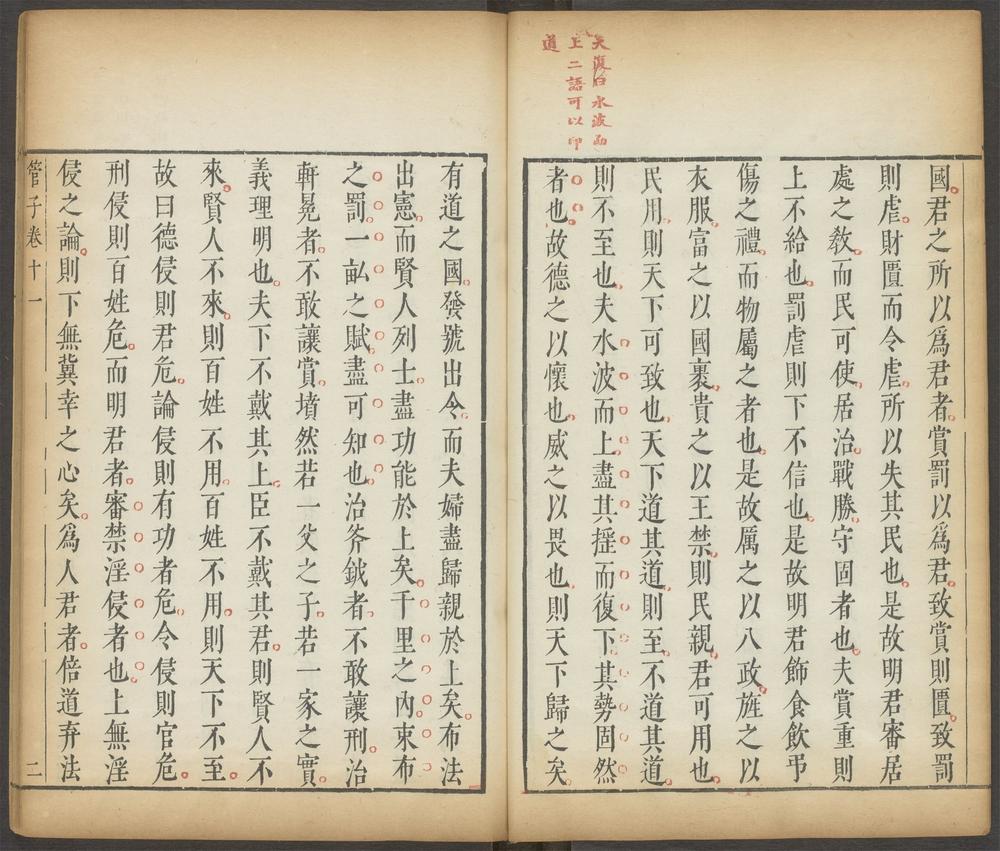 天復曰水波而
上二語可以印
道
國君之所以爲君者賞罰以爲君致賞則匱致罰
則虐財匱而令虐所以失其民也是故明君審居
處之敎而民可使居治戰勝守固者也夫賞重則
上不給也罰虐則下不信也是故明君飾食飮弔
傷之禮而物屬之者也是故厲之以八政旌之以
衣服富之以國裹貴之以王禁則民親君可用也
民用則天下可致也天下道其道則至不道其道
則不至也夫水波而上盡其揺而復下其勢固然
者也故德之以懷也威之以畏也則天下歸之矣
有道之國發號出令而夫婦盡歸親於上矣布法
出憲而賢人列士盡功能於上矣千里之內束布
之罰一畝之賦盡可知也治斧鉞者不敢讓刑治
軒冕者不敢讓賞墳然若一父之子若一家之實
義理明也夫下不戴其上臣不戴其君則賢人不
來賢人不來則百姓不用百姓不用則天下不至
故曰德侵則君危論侵則有功者危令侵則官危
刑侵則百姓危而明君者審禁淫侵者也上無淫
侵之論則下無冀幸之心矣爲人君者倍道弃法
管子卷十一 二